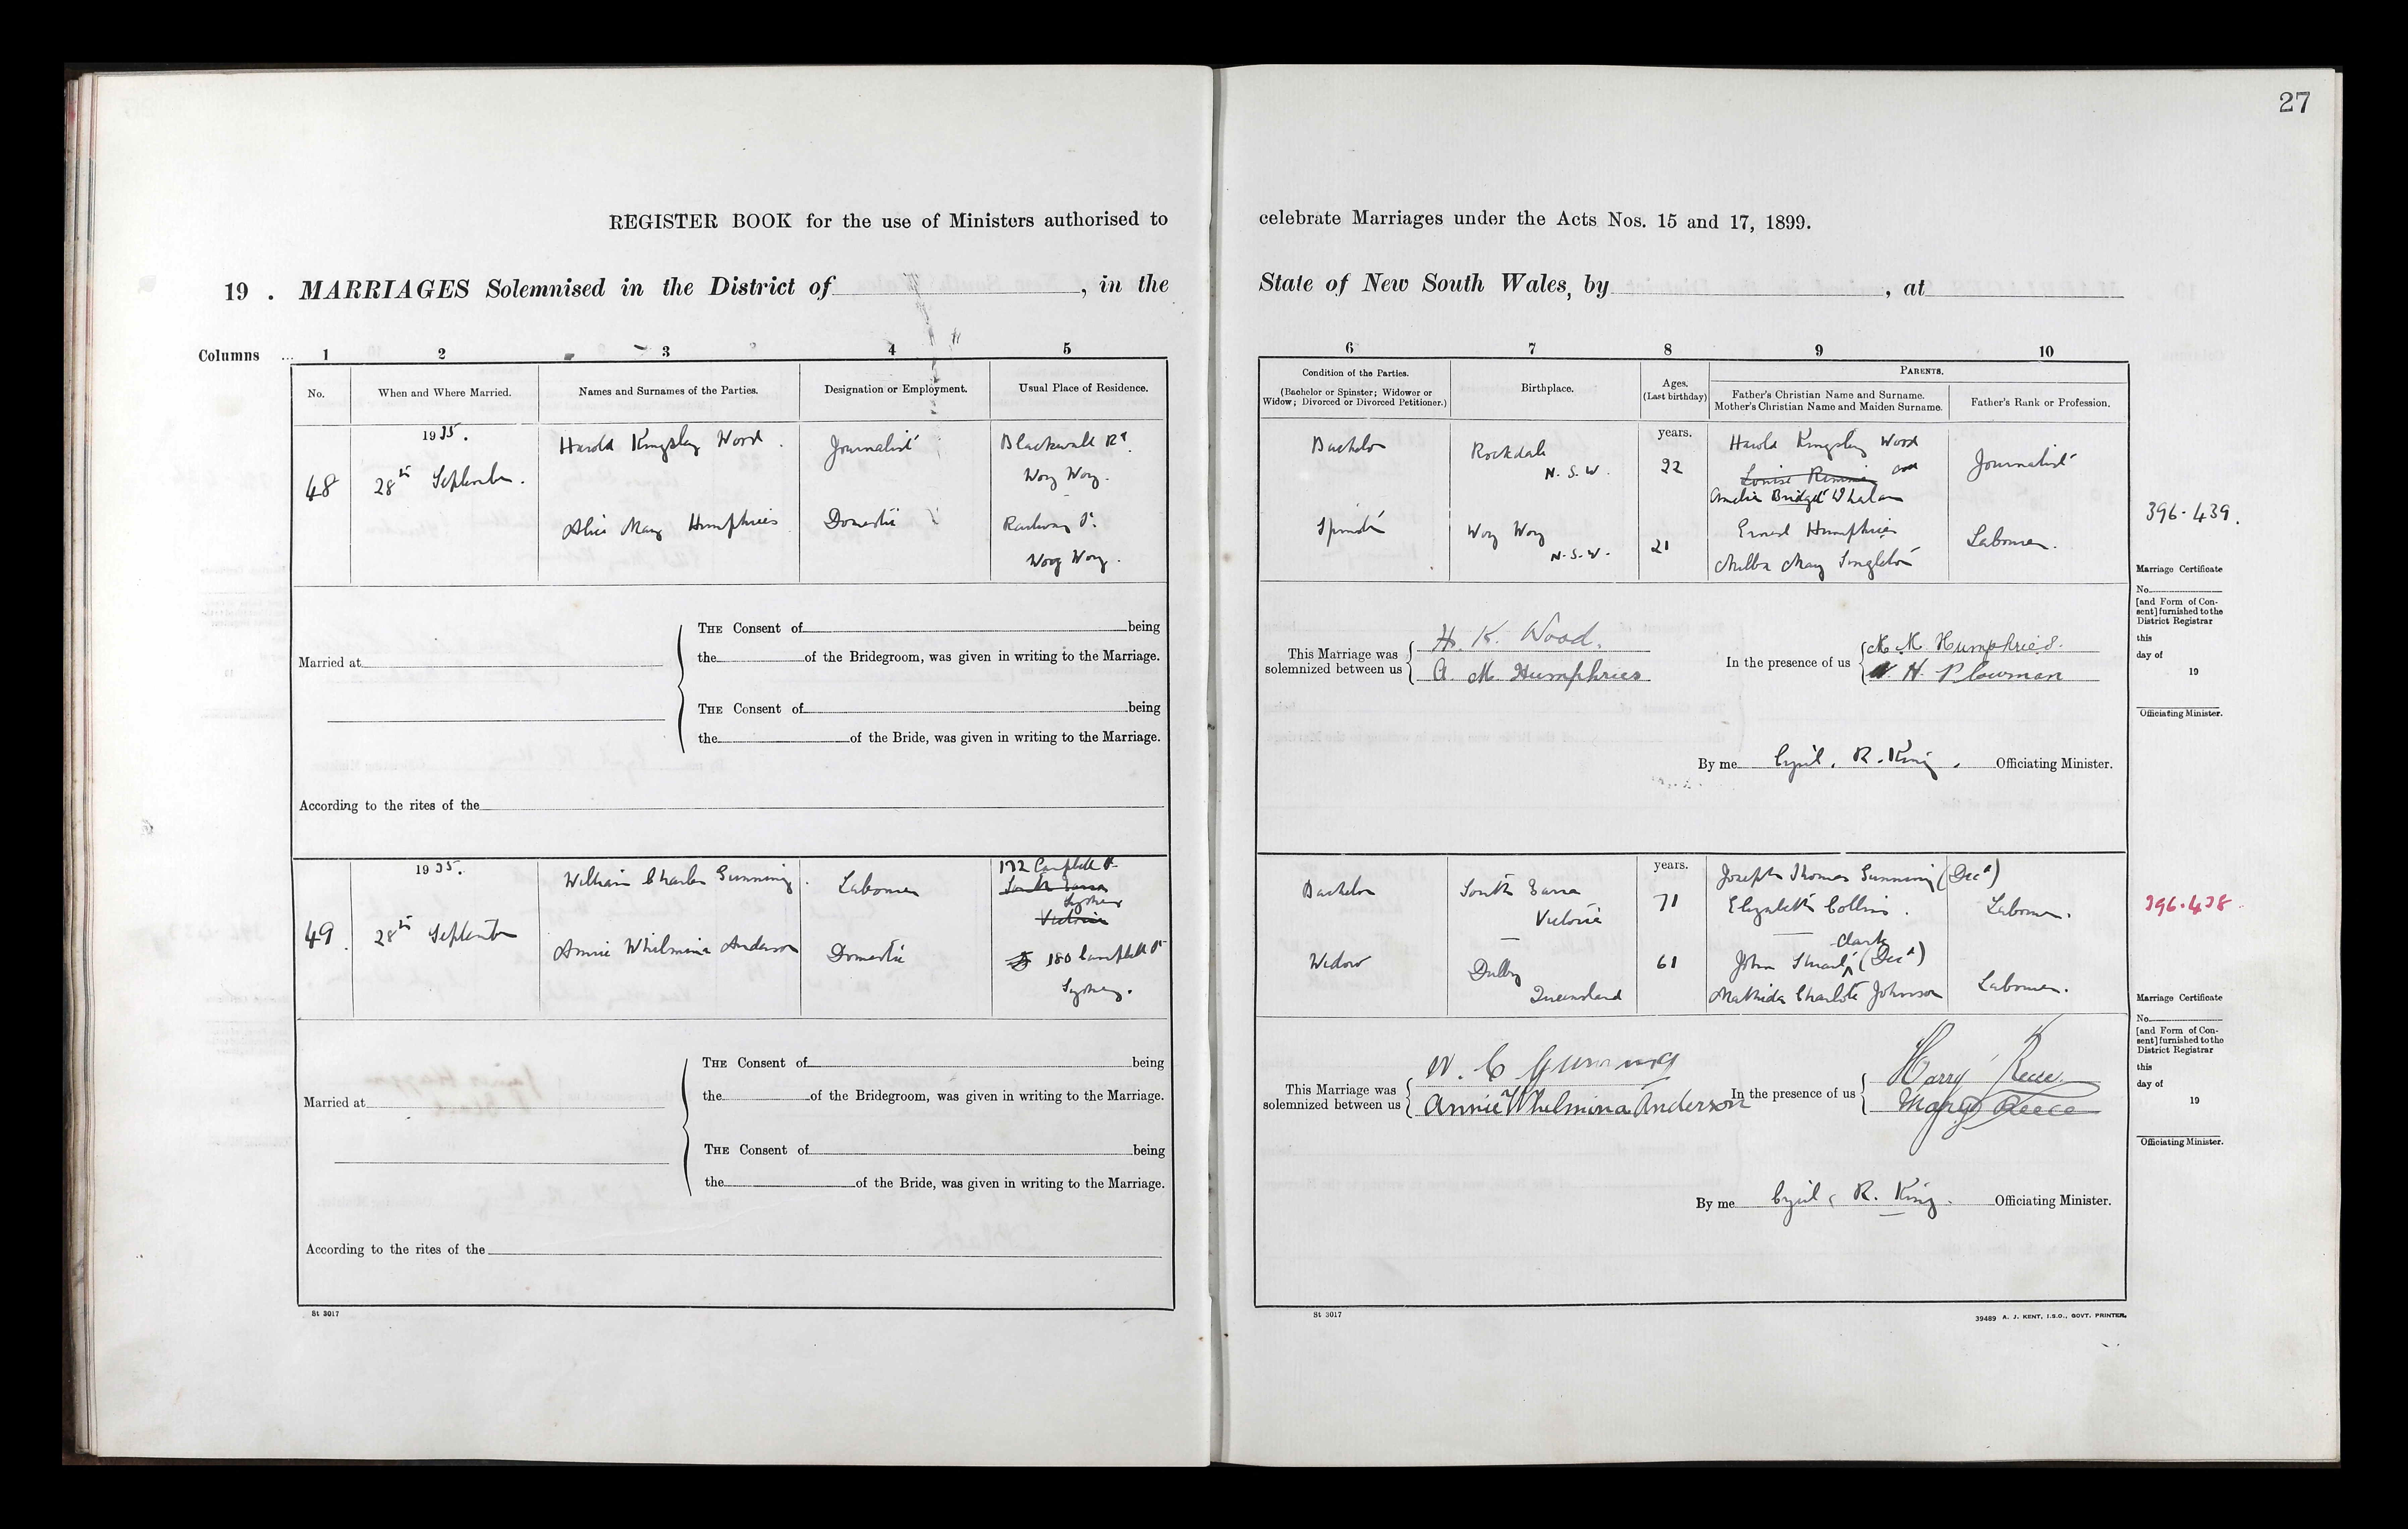 27
REGISTER BOOK for the use of Ministers authorised to celebrate Marriages under the Acts Nos. 15 and 17, 1899.
19 . MARRIAGES Solemnised in the District of , in the State of New South Wales, by , at
Columns ... 1 2 3 4 5 6 7 8 9 10
No. When and Where Married. Names and Surnames of the Parties. Designation or Employment. Usual Place of Residence.
Condition of the Parties. (Bachelor or Spinster; Widower or Widow; Divorced or Divorced Petitioner.) Birthplace. Ages. (Last birthday)
PARENTS.
Father's Christian Name and Surname. Mother's Christian Name and Maiden Surname. Father's Rank or Profession.
1935.
48 28th September.
Harold Kingsley Wood. Journalist Blackwall Rd.
Woy Woy.
Alice May Humphries Domestic Railway St.
Woy Woy.
Bachelor Rockdale
N.S.W.
years.
22
Harold Kingsley Wood and
Louise
Amelia Bridget Whelan
Journalist
Spinster Woy Woy
N.S.W.
21
Ernest Humphries
Melba May Singleton
Labourer.
396.439.
Married at
THE Consent of being
the of the Bridegroom, was given in writing to the Marriage.
THE Consent of being
the of the Bride, was given in writing to the Marriage.
According to the rites of the
This Marriage was solemnized between us
H. K. Wood.
A. M. Humphries
In the presence of us
M. M. Humphries.
H. Plowman
By me Cyril. R. King. Officiating Minister.
Marriage Certificate
No.
[and Form of Con-
sent] furnished to the
District Registrar
this
day of
19
Officiating Minister.
1935.
49. 28th September
William Charles Gunning. Labourer
132 Campbell St
South Yarra
Sydney
Victoria
Annie Whilmina Anderson Domestic 180 Campbell St
Sydney.
Bachelor South Yarra
Victoria
years.
71
Joseph Thomas Gunning (Decd)
Elizabeth Collins.
Labourer.
Widow Dalby
Queensland
61
Clark
John Stuart (Decd)
Mathida Charlote Johnson
Labourer.
396.438.
Married at
THE Consent of being
the of the Bridegroom, was given in writing to the Marriage.
THE Consent of being
the of the Bride, was given in writing to the Marriage.
According to the rites of the
This Marriage was solemnized between us
W. C Gunning
Annie Whelmina Anderson
In the presence of us
Harry Reece
Mary Reece
By me Cyril R. King. Officiating Minister.
Marriage Certificate
No.
[and Form of Con-
sent] furnished to the
District Registrar
this
day of
19
Officiating Minister.
St 3017
St 3017
39489 A. J. KENT, I.S.O., GOVT. PRINTER.